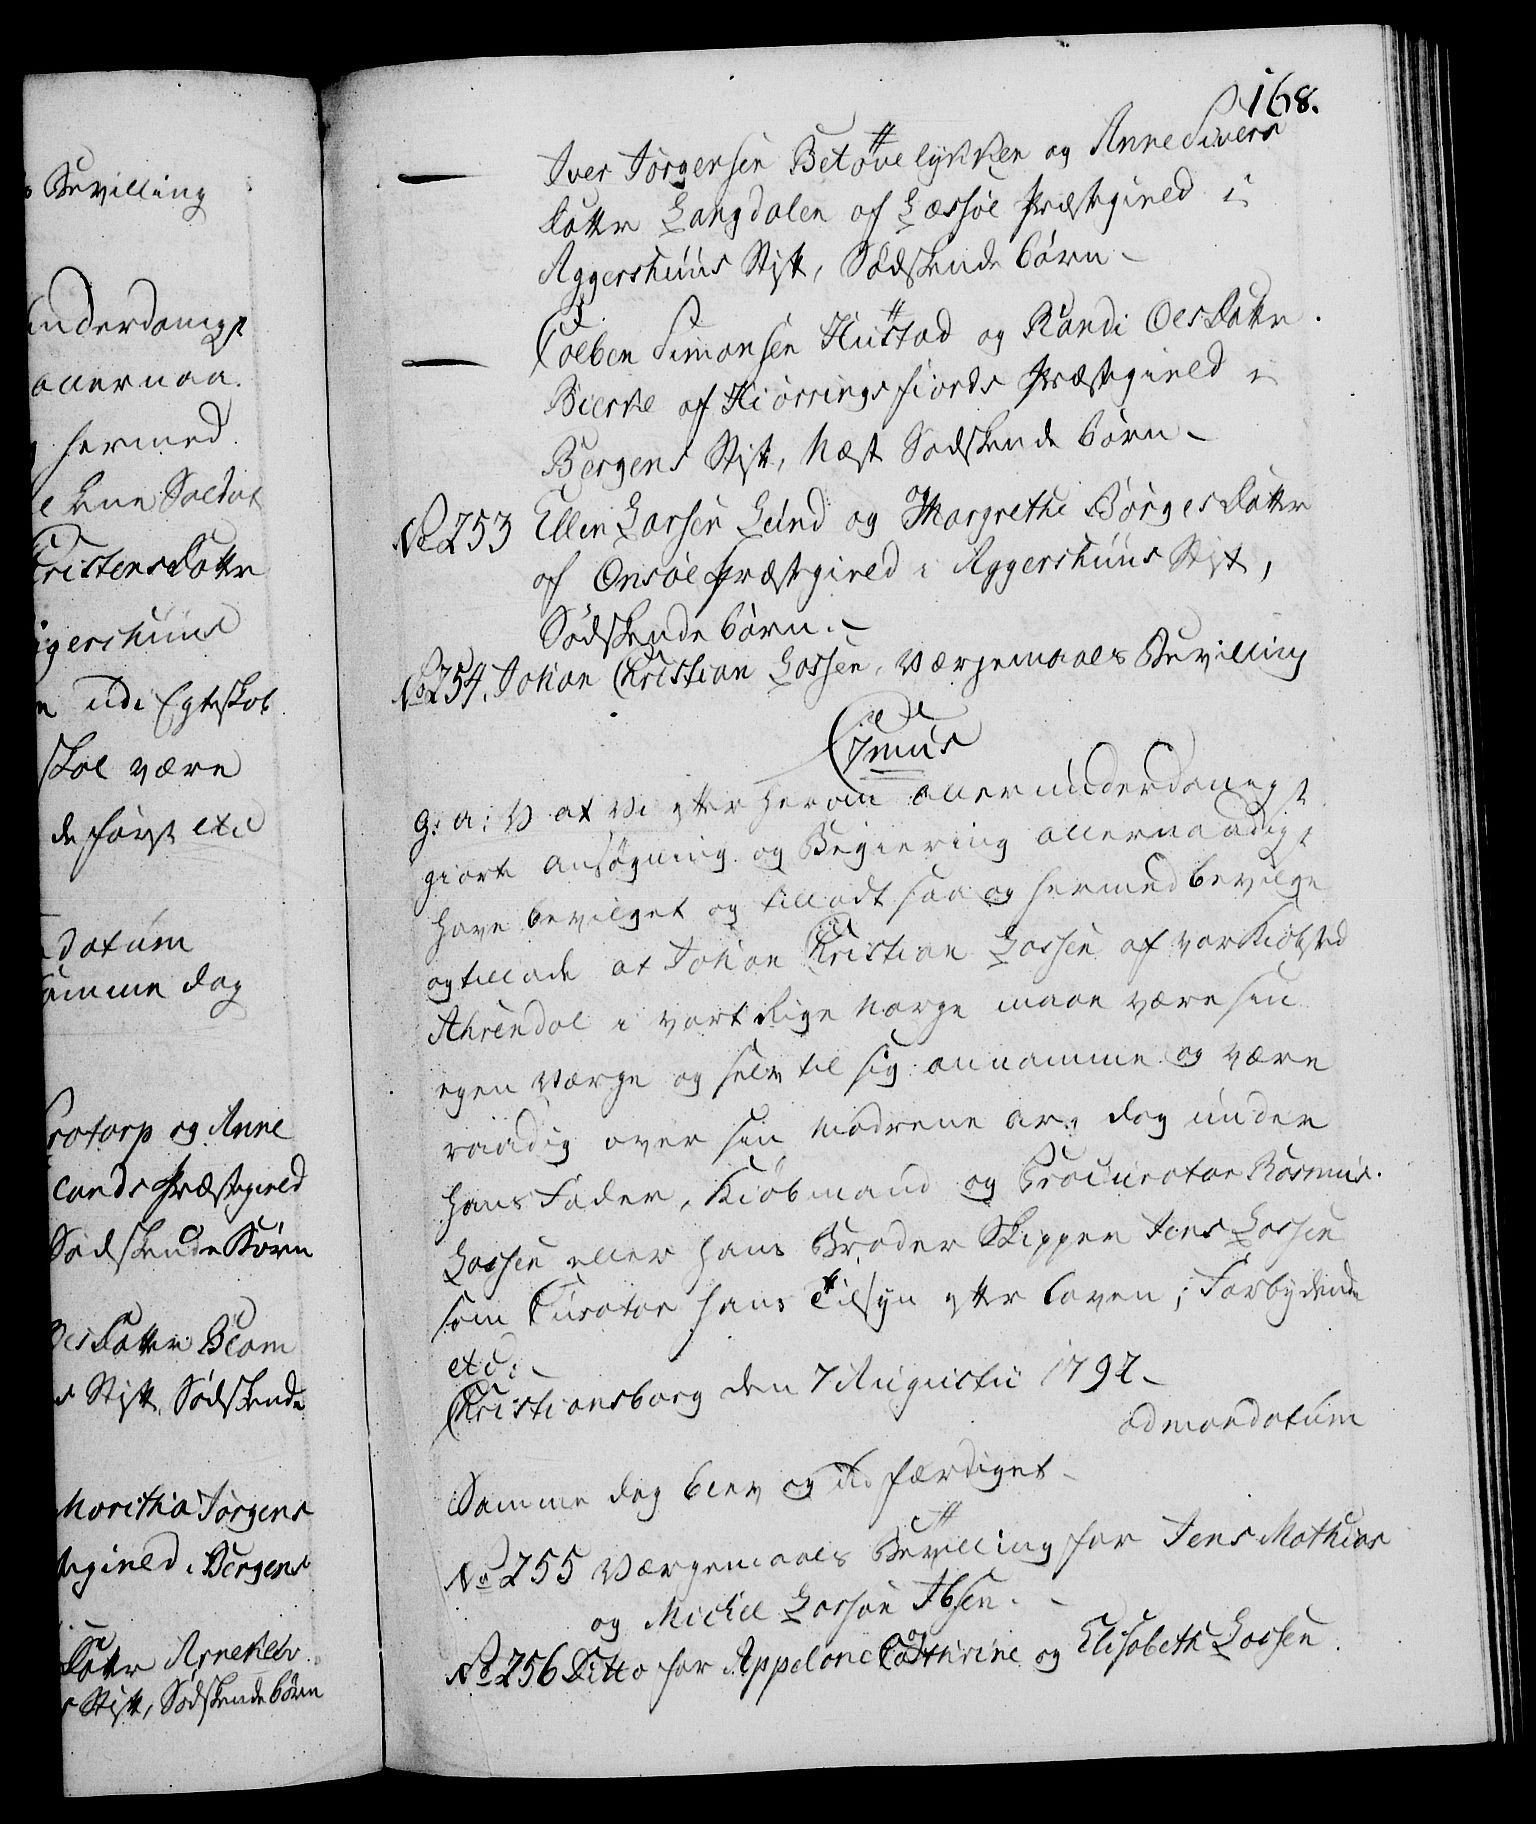 s Bevilling
underdanigst
allernaa.
hermed
e Lnn Soldat
Christensdatter
Aggershuus
udi Egteskab
skal være
de først etc
datum
samme dag
rotorp og Anne
lands Præstegield
Sødskende Børn
Olsdatter Blom
s Stift, Sødskende
Maritha Jørgens
stegield i Bergens
datter Arneklev
s Stift, Sødskendebørn
168.
— Iver Jørgensen Betøvelykken og Anne Sivers
datter Langdalen af Læssøe Præstegield i
Aggershuus Stift, Sødskende børn –
— Colben Simonsen Hustad og Randi Olsdatter
Bierke af Hiørringfiords Præstegield i
Bergens Stift, Næst Sødskende børn –
No 253 Ellen Larsen Lund og Margrethe Børgesdatter
af Onsøe Præstegield i Aggershuus Stift,
Sødskendebørn. –
No 254. Johan Christian Lassen, Værgemaals Bevilling
C 7mus
G: A: V at Vi efter herom allerunderdanigst
giorte ansøgning og Begiering allernaadigst
have bevilget og tilladt saa og hermed bevilge
og tillade at Johan Christian Lassen af vor Kiøbsted
Ahrendal i vort Rige Norge maae være sin
egen Værge og selv til sig annamme og være
raadig over sin Mødrene arv, dog under
hans Fader, Kiøbmand og Procurator Rasmus
Lassen eller hans Broder Skipper Jens Lassen
som Curator hans Tilsyn efter loven; Forbydende
etc: –
Christiansborg den 7 Augustii 1792 –
ad mandatum
Samme dag blev og udfærdiget –
No 255 Værgemaals Bevilling for Jens Mathias
og Michel Larsøn Ibsen. –
No 256 Ditto for Appelone Cathrine og Elisabeth Lassen.